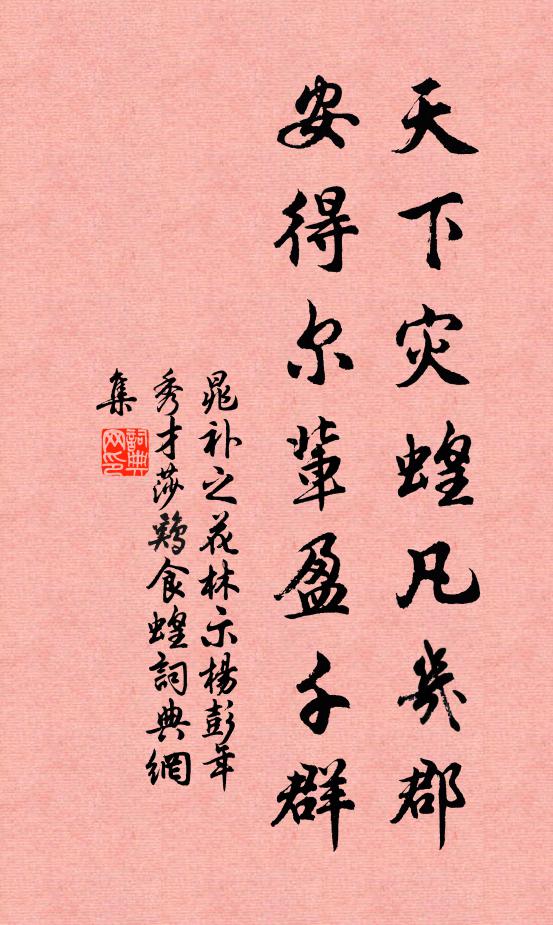 天下灾蝗凡几郡
安得尔辈盈千群
晁补之花林示杨彭年
秀才莎鸡食蝗词典网
集
詞典
网印